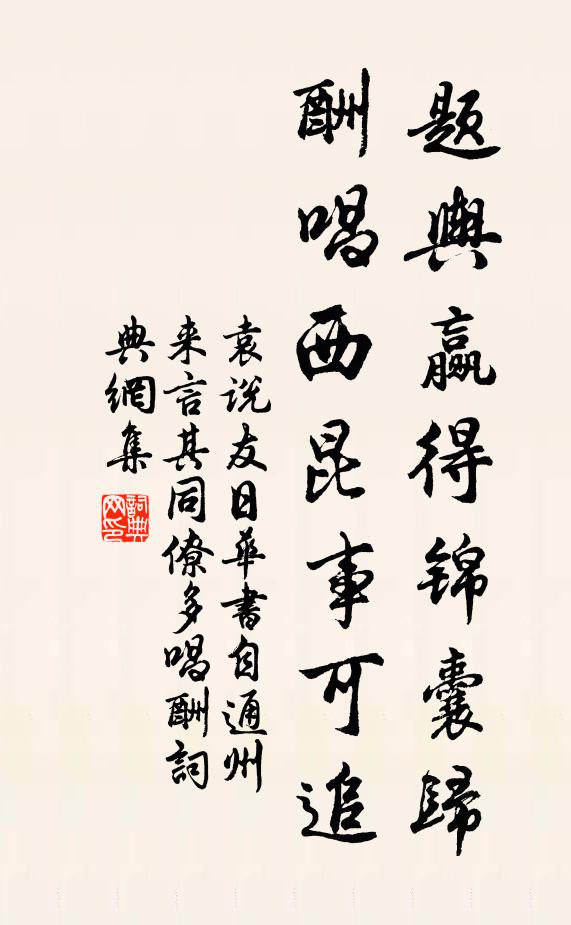 題輿贏得錦囊歸
酬唱西昆事可追
袁说友日華書自通州
来言其同僚多唱酬詞
典網集
詞典网印